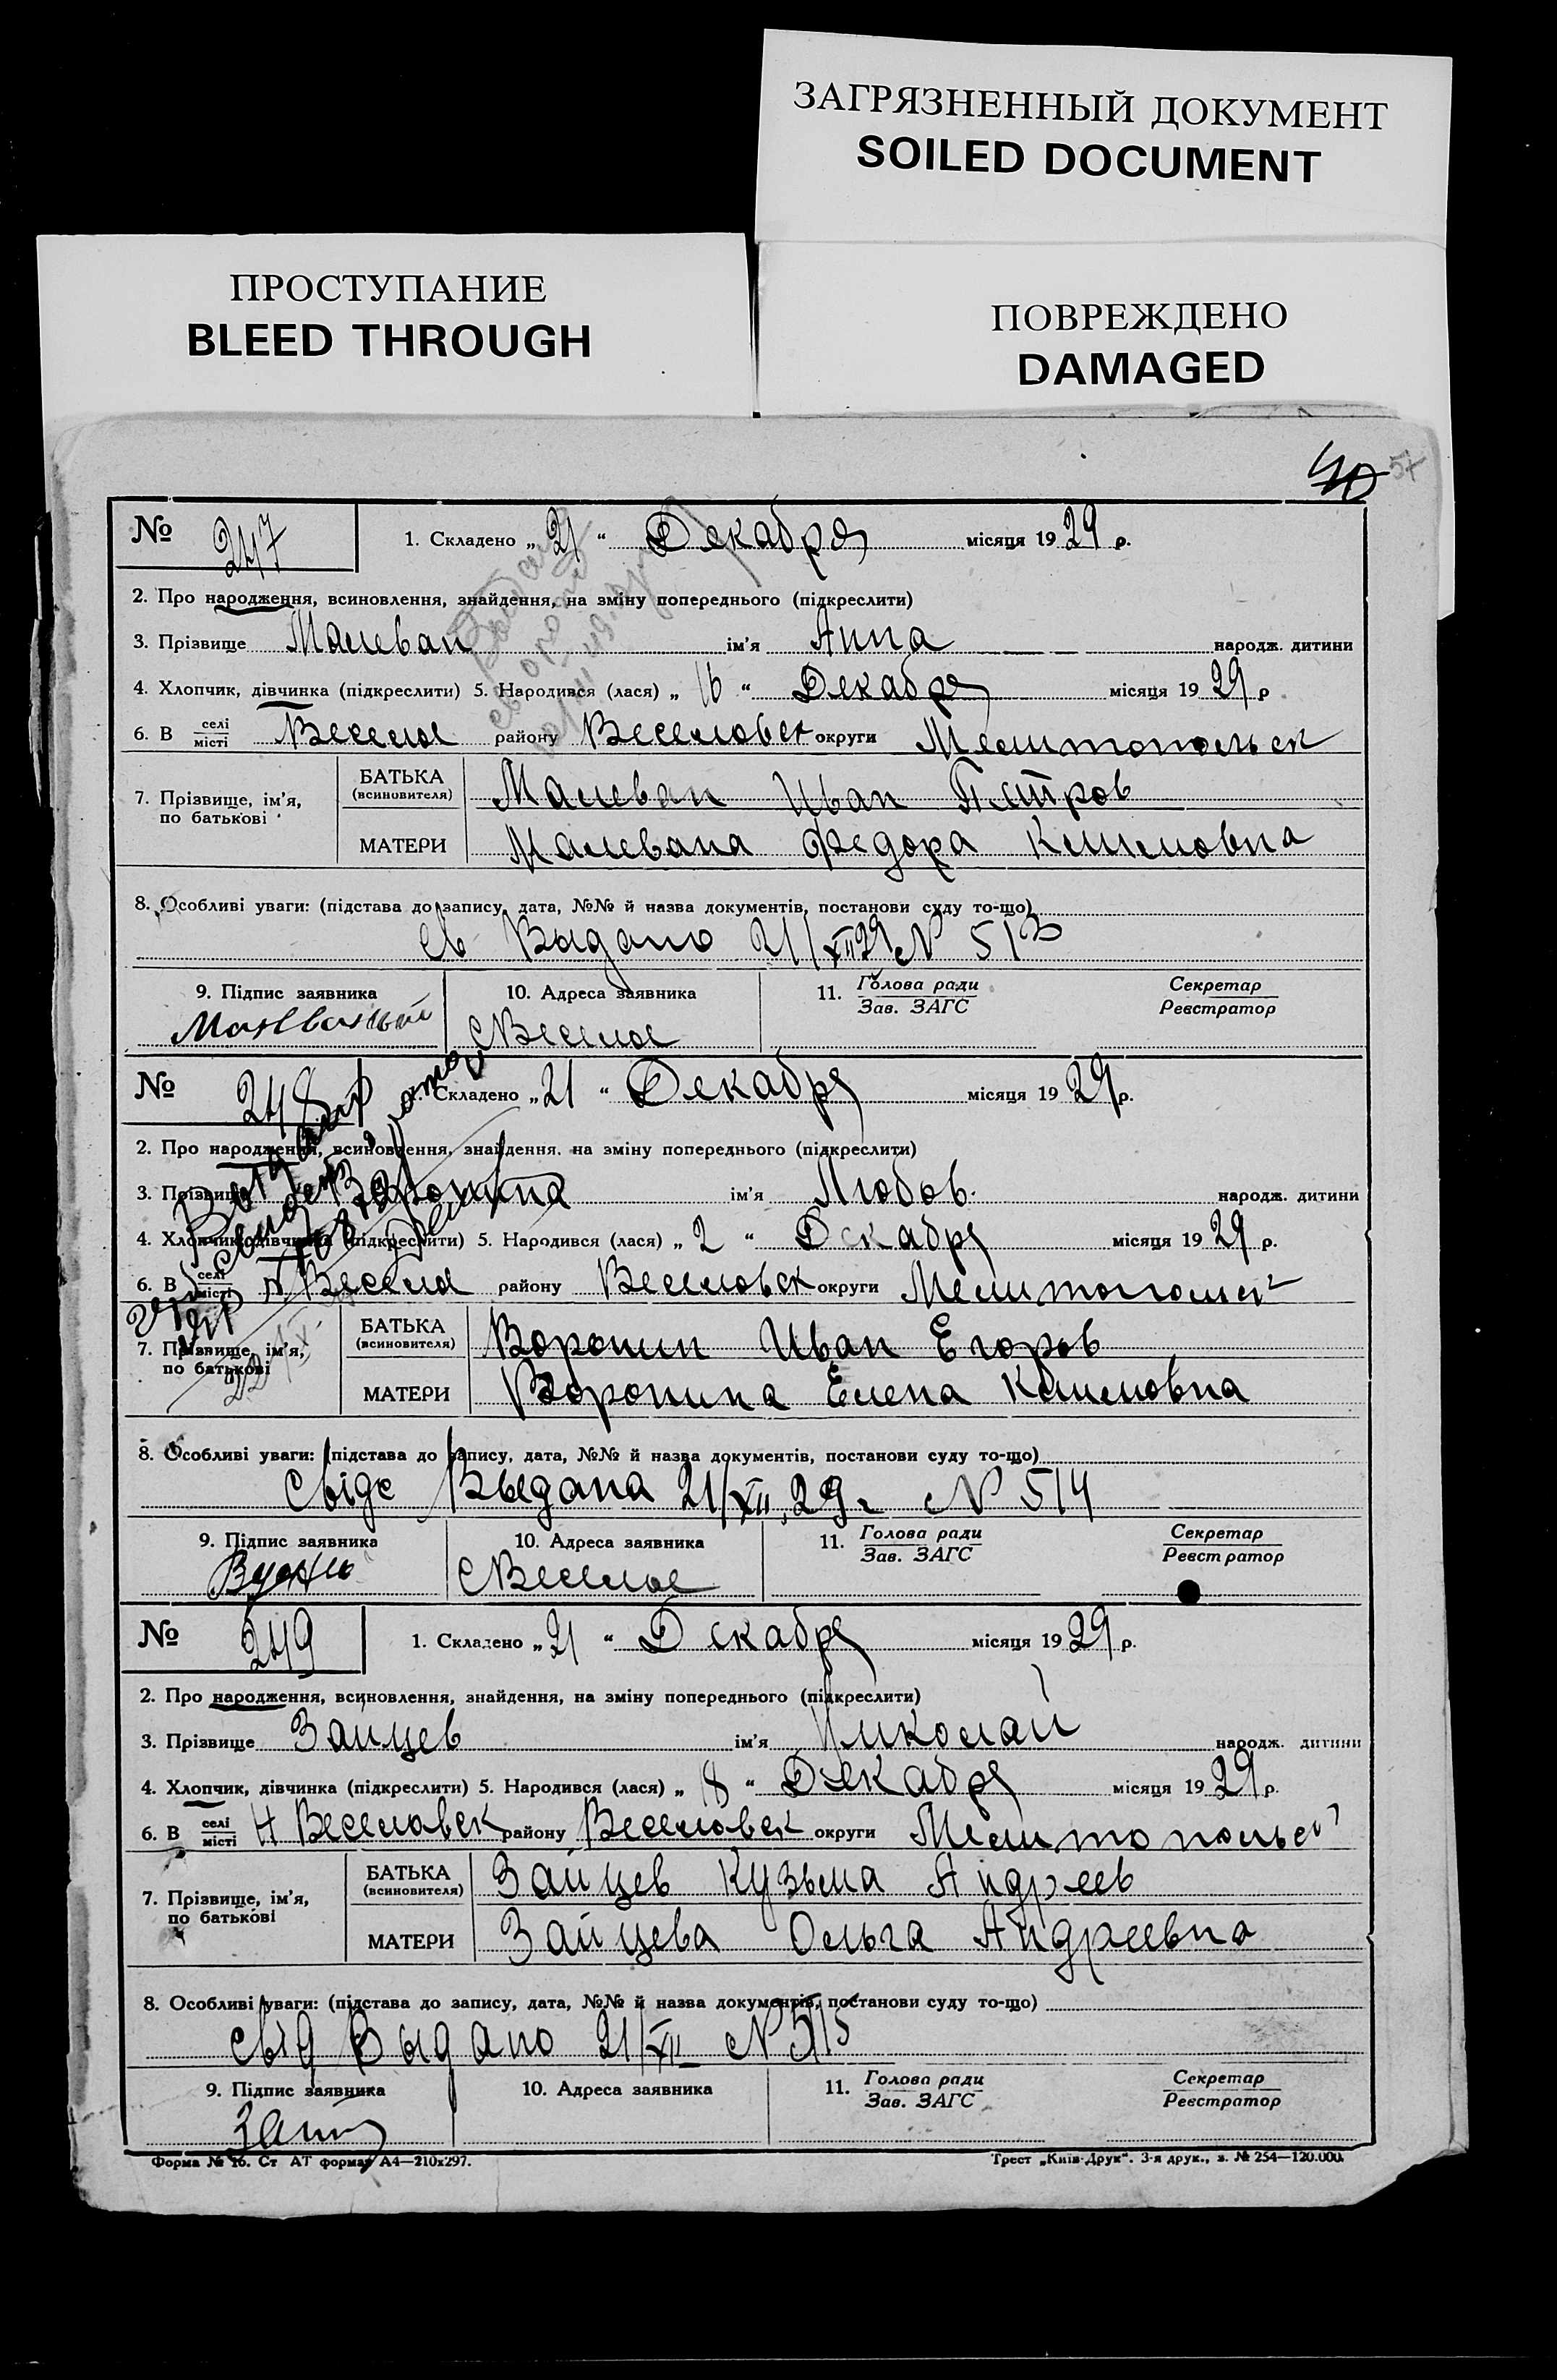 ЗАГРЯЗНЕННЫЙ ДОКУМЕНТ
SOILED DOCUMENT
ПРОСТУПАНИЕ
BLEED THROUGH
ПОВРЕЖДЕНО
DAMAGED
40 57
№ 247 1. Складено „ 21 “ Декабря місяця 19 29 р.
2. Про народження, всиновлення, знайдення, на зміну попереднього (підкреслити)
3. Прізвище Малеван ім'я Анна народж. дитини
4. Хлопчик, дівчинка (підкреслити) 5. Народився (лася) „ 16 “ Декабря місяця 19 29 р
6. В селі місті Веселое району Веселовск округи Мелитопольск
7. Прізвище, ім'я, по батькові
БАТЬКА (всиновителя) Малеван Иван Петров
МАТЕРИ Малевана Федора Климовна
8. Особливі уваги: (підстава до запису, дата, №№ й назва документів, постанови суду то-що)
Св Выдано 21/XII 29 N 513
9. Підпис заявника 10. Адреса заявника 11. Голова ради Зав. ЗАГС Секретар Реєстратор
с Веселое
№ 248 1. Складено „ 21 “ Декабря місяця 19 29 р.
2. Про народження, всиновлення, знайдення, на зміну попереднього (підкреслити)
3. Прізвище Воронина ім'я Любов народж. дитини
4. Хлопчик, дівчинка (підкреслити) 5. Народився (лася) „ 2 “ Декабря місяця 19 29 р.
6. В селі місті Веселое району Веселовск округи Мелитопольск
7. Прізвище, ім'я, по батькові
БАТЬКА (всиновителя) Воронин Иван Егоров
МАТЕРИ Воронина Елена Климовна
8. Особливі уваги: (підстава до запису, дата, №№ й назва документів, постанови суду то-що)
Свідс Выдана 21/XII 29 г N 514
9. Підпис заявника 10. Адреса заявника 11. Голова ради Зав. ЗАГС Секретар Реєстратор
с Веселое
№ 249 1. Складено „ 21 “ Декабря місяця 19 29 р.
2. Про народження, всиновлення, знайдення, на зміну попереднього (підкреслити)
3. Прізвище Зайцев ім'я Николай народж. дитини
4. Хлопчик, дівчинка (підкреслити) 5. Народився (лася) „ 18 “ Декабря місяця 19 29 р.
6. В селі місті Н Веселовск району Веселовск округи Мелитопольск
7. Прізвище, ім'я, по батькові
БАТЬКА (всиновителя) Зайцев Кузьма Андреев
МАТЕРИ Зайцева Ольга Андреевна
8. Особливі уваги: (підстава до запису, дата, №№ й назва документів, постанови суду то-що)
Свід Выдано 21/XII N 515
9. Підпис заявника 10. Адреса заявника 11. Голова ради Зав. ЗАГС Секретар Реєстратор
Форма № 16. Ст АТ формат А4—210х297. Трест „Київ-Друк“. 3-я друк., з. № 254—120.000.